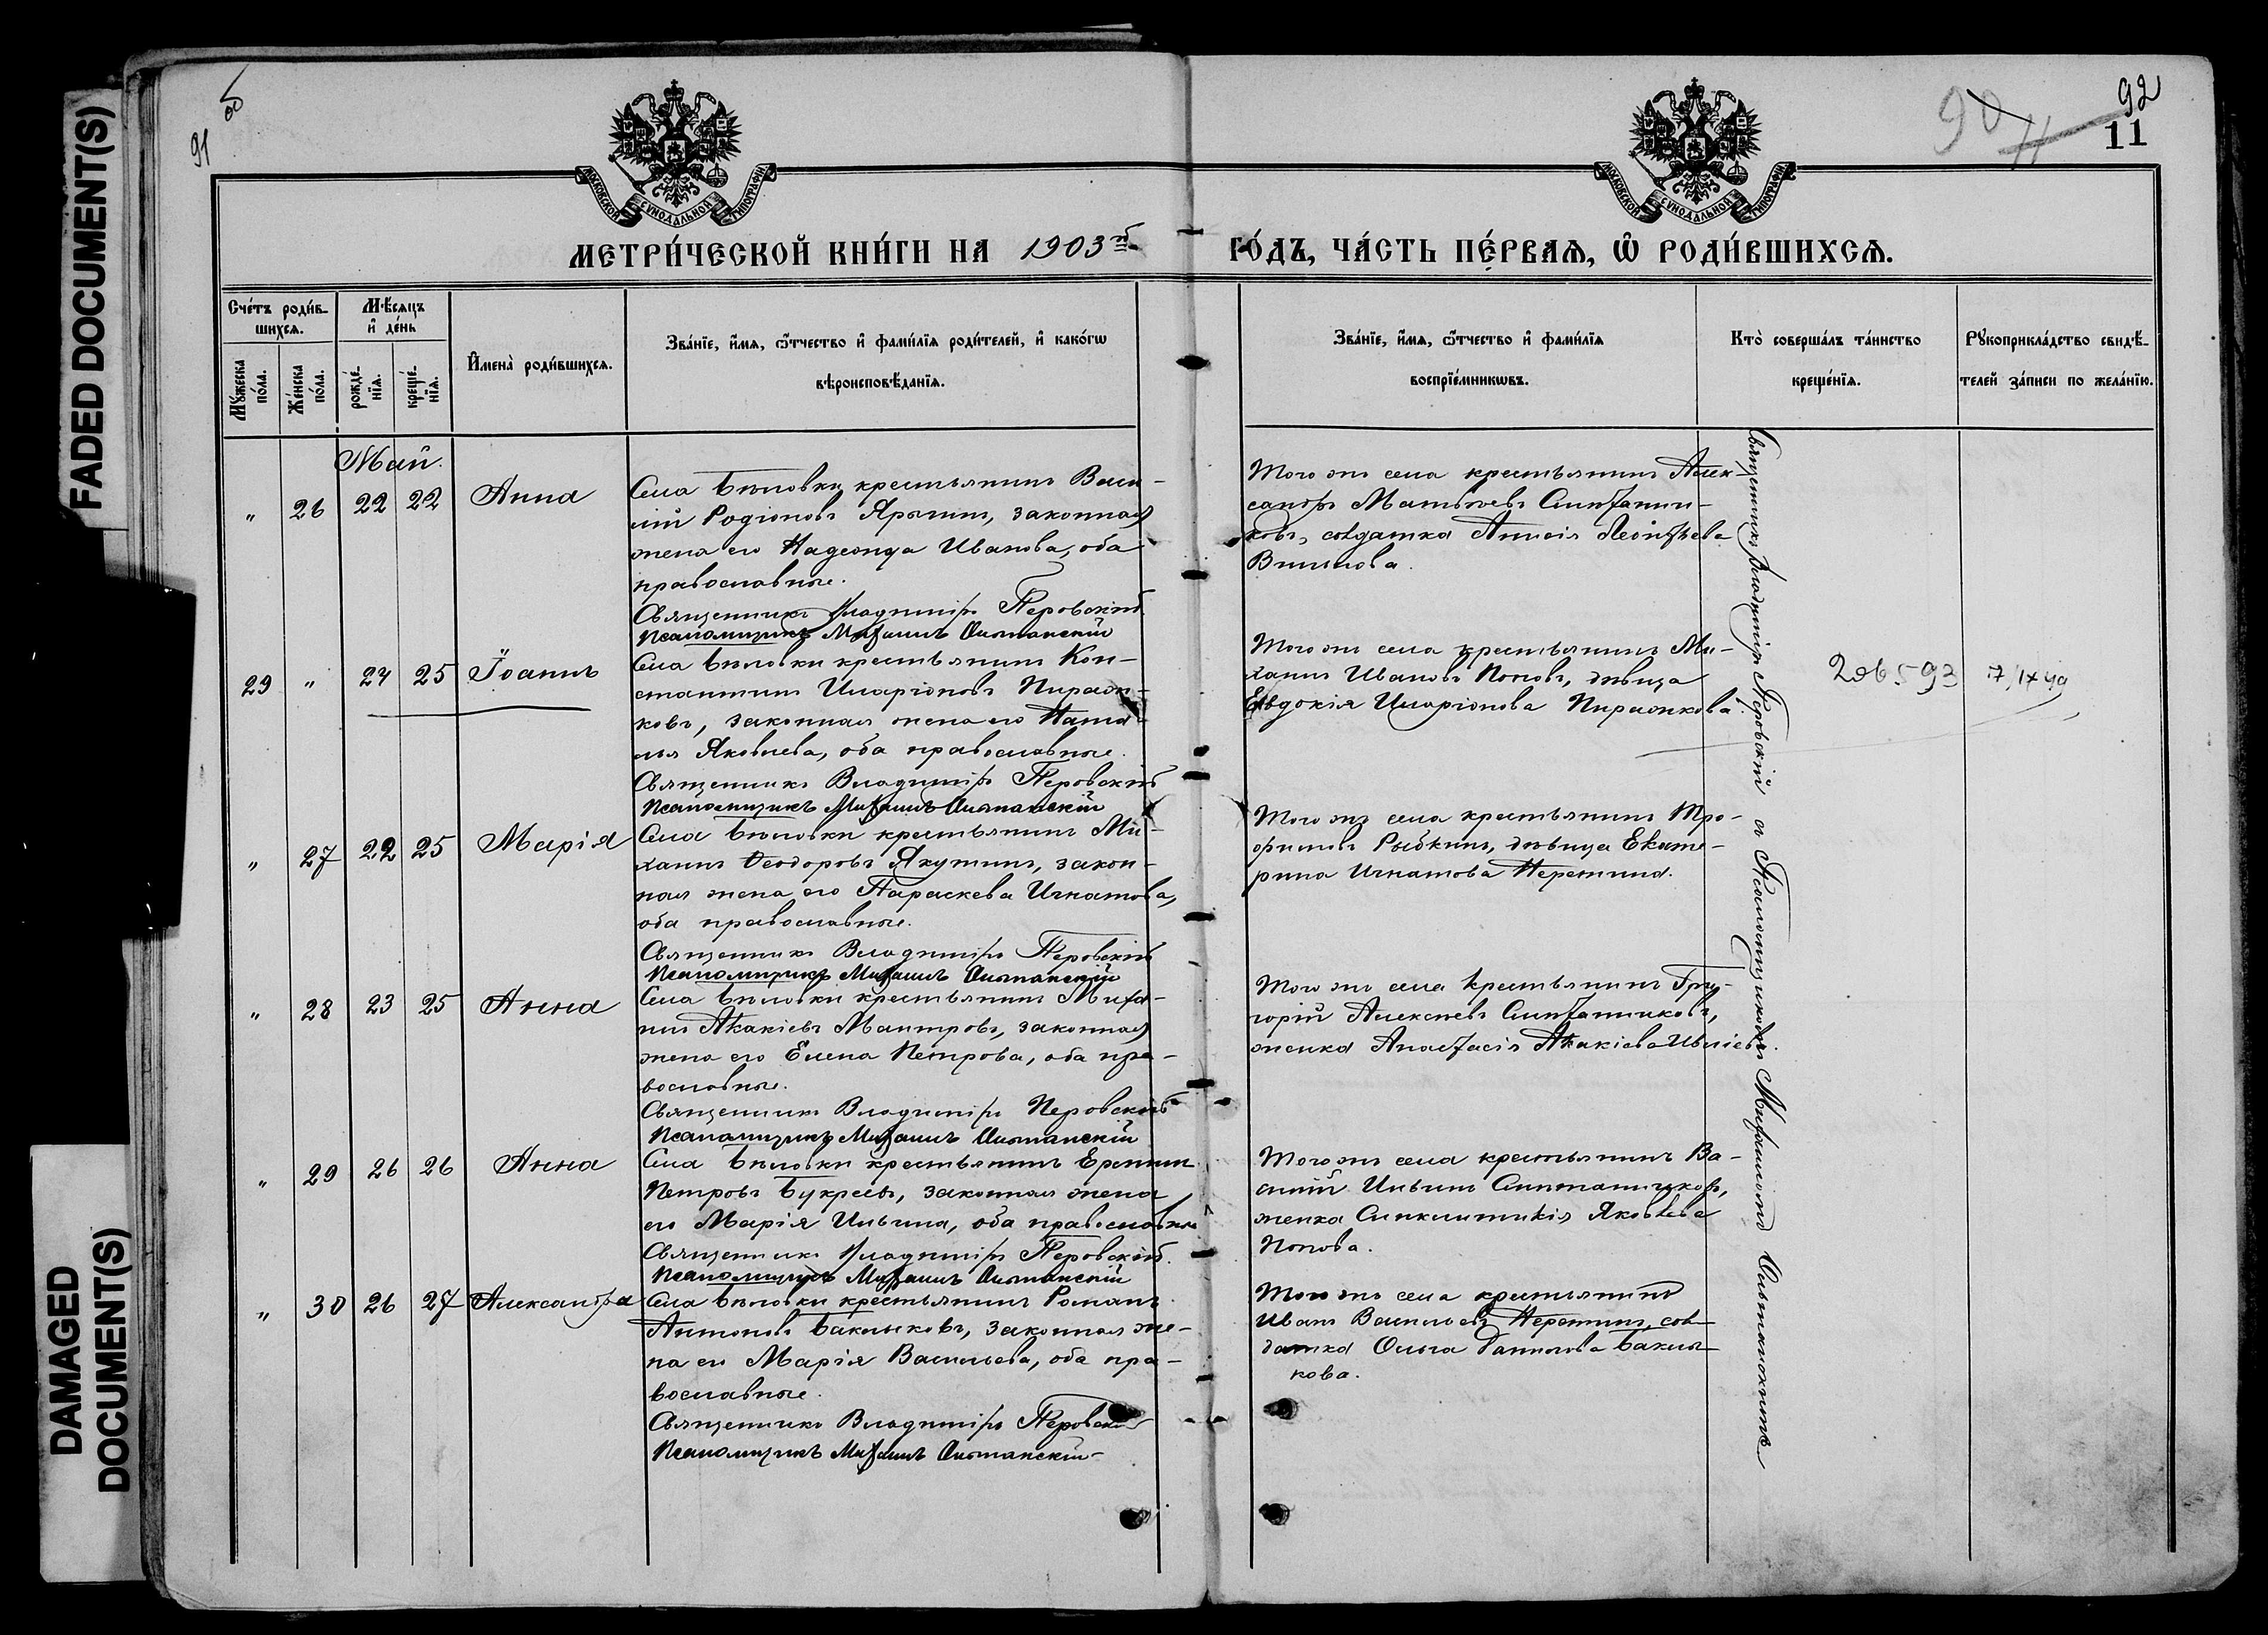 FADED DOCUMENT(S)
DAMAGED
DOCUMENT(S)
91 об
90
11
92
11
МОСКОВСКОЙ СѴНОДАЛЬНОЙ ТИПОГРАФІИ
МОСКОВСКОЙ СѴНОДАЛЬНОЙ ТИПОГРАФІИ
МЕТРИ́ЧЕСКОЙ КНИ́ГИ НА 1903й
ГО́ДЪ, ЧА́СТЬ ПЕ́РВАѦ, Ѽ РОДИ́ВШИХСѦ.
Сче́тъ роди́в-
шихсѧ.
Мꙋ́жеска по́ла.
Же́нска по́ла.
Мѣ́сѧцъ
и҆ де́нь
рожде́-
нїѧ.
креще́-
нїѧ.
И҆мена̀ роди́вшихсѧ.
Зва́нїе, и҆́мѧ, ѻ҆́тчество и҆ фами́лїѧ роди́телей, и҆ како́гѡ
вѣроисповѣ́данїѧ.
Зва́нїе, и҆́мѧ, ѻ҆́тчество и҆ фами́лїѧ
воспрїе́мникѡвъ.
Кто̀ соверша́лъ та́инство
креще́нїѧ.
Рꙋкоприкла́дство свидѣ́-
телей за́писи по жела́нїю.
Май.
" 26 22 22 Анна
Села Бѣловки крестьянинъ Васи-
лій Родіоновъ Ярыгинъ, законная
жена его Надежда Иванова, оба
православные.
Священникъ Владиміръ Перовскій
Псаломщикъ Михаилъ
Того же села крестьянинъ Алек-
сандръ Матвѣевъ
ковъ, солдатка Анисія Леонтьева
29 " 24 25 Іоаннъ
Села Бѣловки крестьянинъ Кон-
стантинъ Иларіоновъ Пираж-
ковъ, законная жена его Ната-
лья Яковлева, оба православные.
Священникъ Владиміръ Перовскій
Псаломщикъ Михаилъ
Того же села крестьянинъ Ми-
хаилъ Ивановъ Поповъ, дѣвица
Евдокія Иларіонова Пиражкова.
206593 7/IX 49
" 27 22 25 Марія
Села Бѣловки крестьянинъ Ми-
хаилъ Ѳеодоровъ Якутинъ, закон-
ная жена его Параскева Игнатова,
оба православные.
Священникъ Владиміръ Перовскій
Псаломщикъ Михаилъ
Того же села крестьянинъ Тро-
фимъ Рыбкинъ, дѣвица Екате-
рина Игнатова
" 28 23 25 Анна
Села Бѣловки крестьянинъ Миха-
илъ Акакіевъ Мантровъ, законная
жена его Елена Петрова, оба пра-
вославные.
Священникъ Владиміръ Перовскій
Псаломщикъ Михаилъ
Того же села крестьянинъ Гри-
горій Алексѣевъ
женка Анастасія Акакіева
" 29 26 26 Анна
Села Бѣловки крестьянинъ
Петровъ Букреевъ, законная жена
его Марія Ильина, оба православные
Священникъ Владиміръ Перовскій.
Псаломщикъ Михаилъ
Того же села крестьянинъ Ва-
силій Ильинъ
женка Синклитикія Яковлева
Попова.
" 30 26 27 Александра
Села Бѣловки крестьянинъ Романъ
Антоновъ Баклыковъ, законная же-
на его Марія Васильева, оба пра-
вославные.
Священникъ Владиміръ Перовскій
Псаломщикъ Михаилъ
Того же села крестьянинъ
Иванъ Васильевъ сол-
датка Ольга Данилова Баклы-
кова.
Священникъ Владиміръ Перовскій съ Псаломщикомъ Михаиломъ